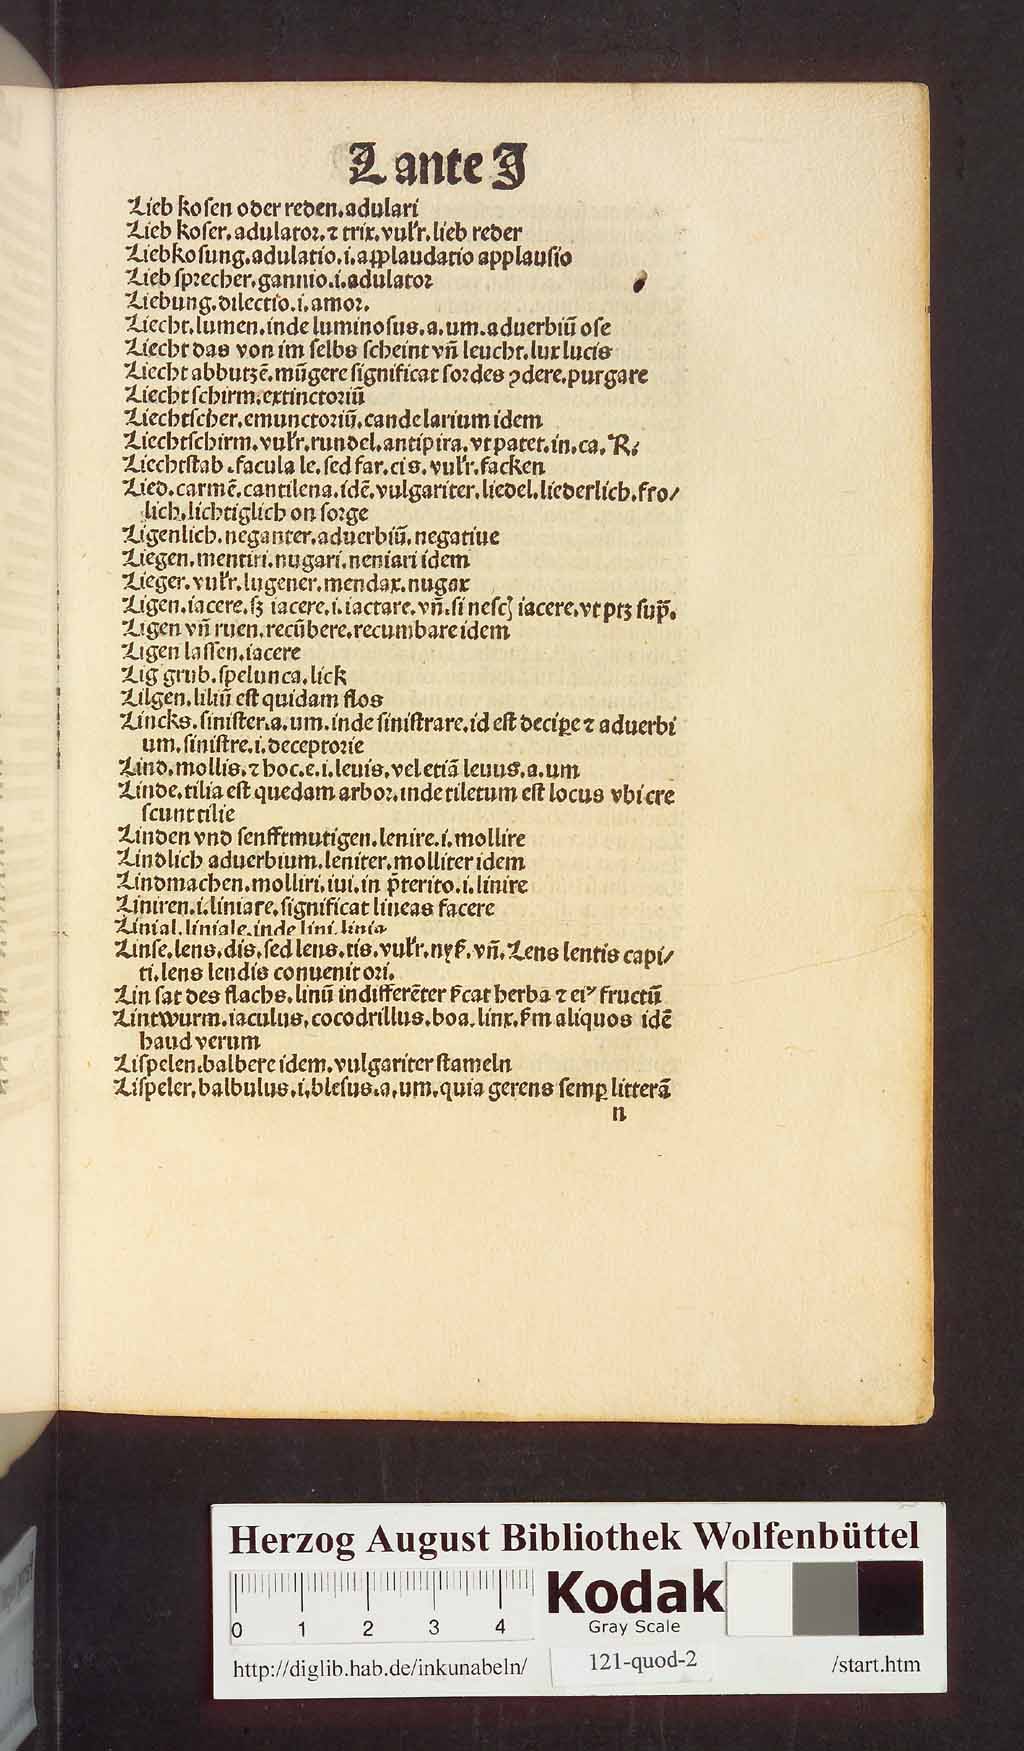 L ante J
Lieb kosen oder reden. adulari
Lieb koser. adulator. ⁊ trix. vulr̃. lieb reder
Liebkosung. adulatio. i. aꝑplaudatio applausio
Lieb sprecher. gannio. i. adulator
Liebung. dilectio. i. amor.
Liecht. lumen. inde luminosus. a. um. aduerbiũ ose
Liecht das von im selbs scheint vñ leucht. lux lucis
Liecht abbutzẽ. mũgere significat sordes ꝯdere. purgare
Liecht schirm. extinctoriũ
Liechtscher. emunctoriũ. candelarium idem
Liechtschirm. vulr̃. rundel. antipira. vt patet. in. ca. R.
Liechtstab. facula le. sed far. cis. vulr̃. facken
Lied. carmẽ. cantilena. idẽ. vulgariter. liedel. liederlich. fro/
lich. lichtiglich on sorge
Ligenlich. neganter. aduerbiũ. negatiue
Liegen. mentiri. nugari. neniari idem
Lieger. vulr̃. lugener. mendax. nugax
Ligen. iacere. sꝫ iacere. i. iactare. vñ. si nescꝭ iacere. vt ptꝫ sup̃.
Ligen vñ ruen. recũbere. recumbare idem
Ligen lassen. iacere
Lig grub. spelunca. lick
Lilgen. liliũ est quidam flos
Lincks. sinister. a. um. inde sinistrare. id est deciꝑe ⁊ aduerbi
um. sinistre. i. deceptorie
Lind. mollis. ⁊ hoc. e. i. leuis. vel etiã leuus. a. um
Linde. tilia est quedam arbor. inde tiletum est locus vbi cre
scunt tilie
Linden vnd senfftmutigen. lenire. i. mollire
Lindlich aduerbium. leniter. molliter idem
Lindmachen. molliri. iui. in p̃terito. i. linire
Liniren. i. liniare. significat lineas facere
Linial. liniale. inde lini. linia
Linse. lens. dis. sed lens. tis. vulr̃. nyß. vñ. Lens lentis capi/
ti. lens lendis conuenit ori.
Lin sat des flachs. linũ indifferẽter ẜcat herba ⁊ ei⁹ fructũ
Lintwurm. iaculus. cocodrillus. boa. linx. ẜm aliquos idẽ
haud verum
Lispelen. balbere idem. vulgariter stameln
Lispeler. balbulus. i. blesus. a. um. quia gerens semꝑ litterã
n
Herzog August Bibliothek Wolfenbüttel
0 1 2 3 4
Kodak
Gray Scale
http://diglib.hab.de/inkunabeln/ 121-quod-2 /start.htm